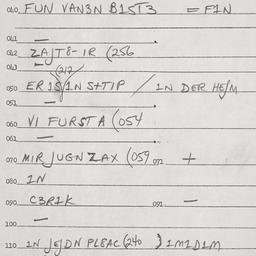 040 FUN VAN3N B1ST3 = F1N
041 —
042 ZAJT8-1R (256
043 — (212
050 ER 1S/1N S+TIP / 1N DER HE/M
051 —
060 VI FURST A (054
061 —
070 MIR JUGN ZAX (059 071 +
080 1N
090 C3R1K 091 —
100 —
110 1N JEJDN PLEAC (240 ) 1M1D1M